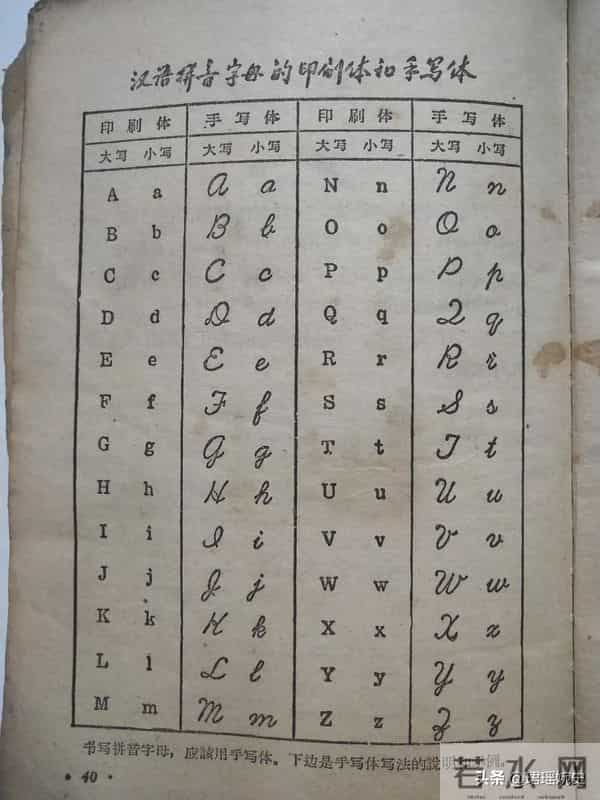 汉语拼音字母的印刷体和手写体
印刷体 手写体 印刷体 手写体
大写 小写 大写 小写 大写 小写 大写 小写
A a A a N n N n
B b B b O o O o
C c C c P p P p
D d D d Q q Q q
E e E e R r R r
F f F f S s S s
G g G g T t T t
H h H h U u U u
I i I i V v V v
J j J j W w W w
K k K k X x X x
L l L l Y y Y y
M m M m Z z Z z
书写拼音字母，应該用手写体。下边是手写体写法的說明
· 40 ·
若水网
头条